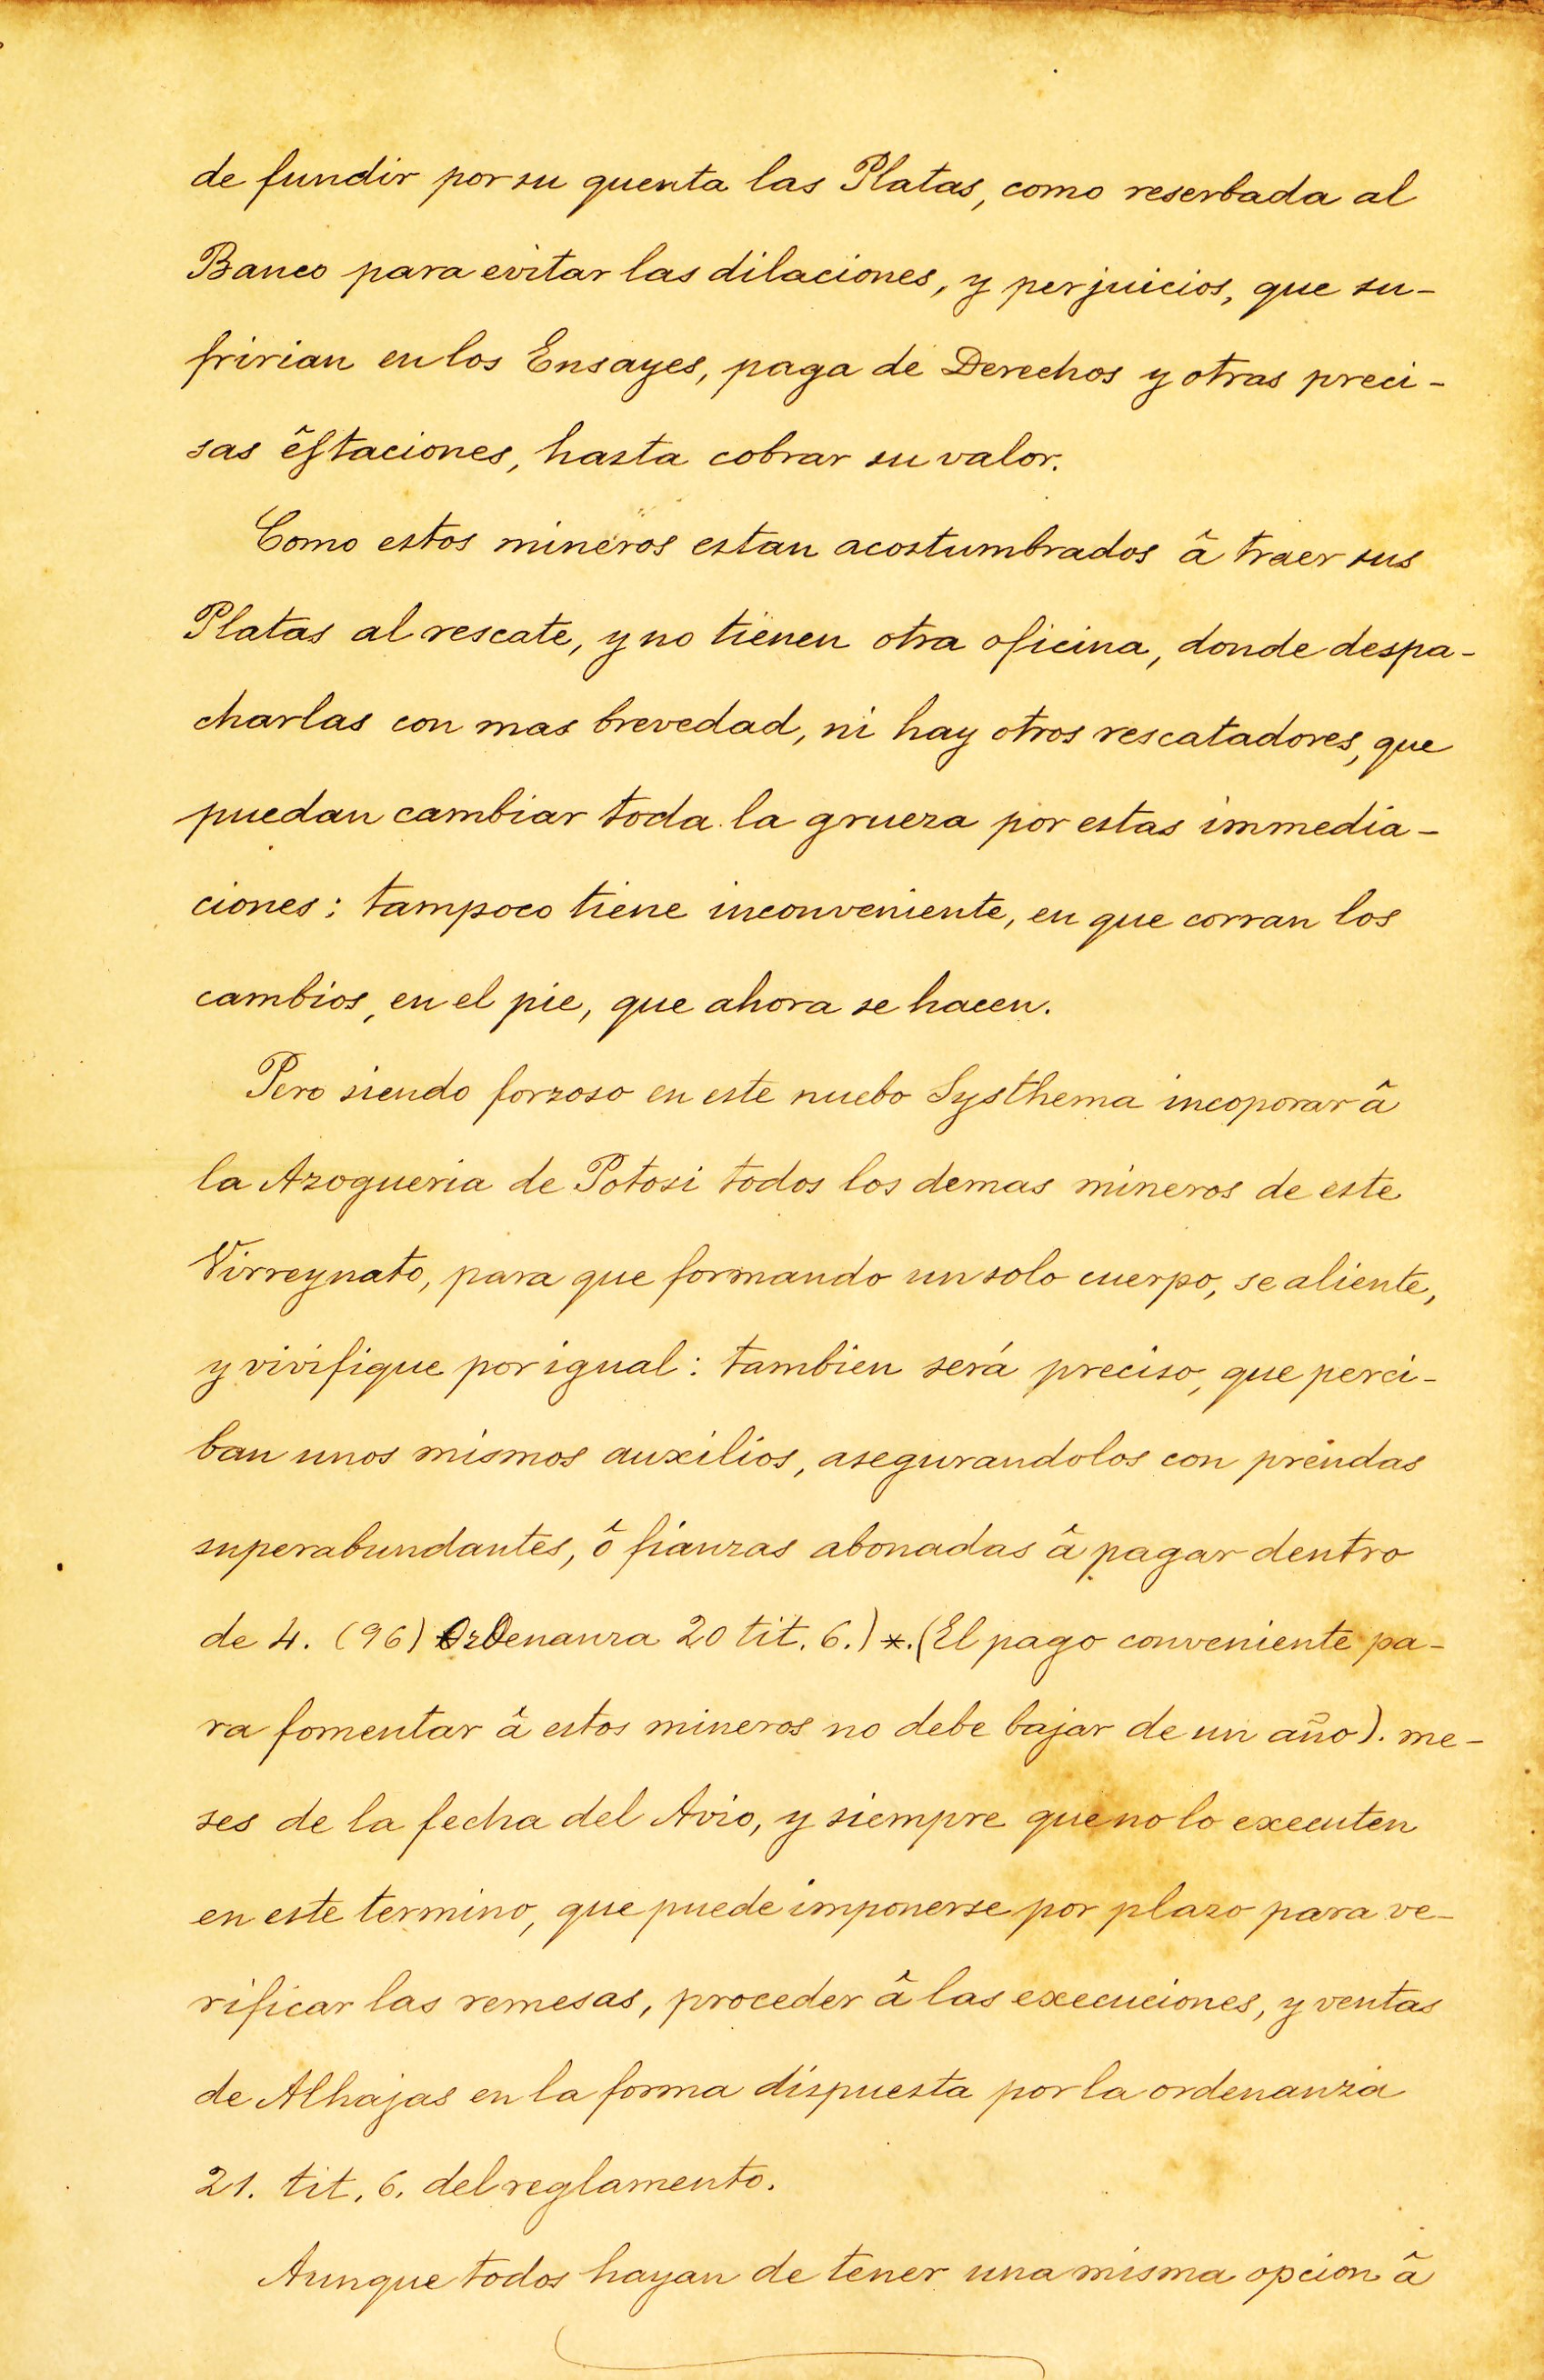 de fundir por su quenta las Platas, como reserbada al
Banco para evitar las dilaciones, y perjuicios, que su-
fririan en los Ensayes, paga de Derechos y otras preci-
sas êstaciones, hasta cobrar su valor.
Como estos mineros estan acostumbrados â traer sus
Platas al rescate, y no tienen otra oficina, donde despa-
charlas con mas brevedad, ni hay otros rescatadores, que
puedan cambiar toda la grueza por estas immedia-
ciones: tampoco tiene inconveniente, en que corran los
cambios, en el pie, que ahora se hacen.
Pero siendo forzoso en este nuebo Systhema incoporar â
la Azogueria de Potosi todos los demas mineros de este
Virreynato, para que formando un solo cuerpo, se aliente,
y vivifique por igual: tambien será preciso, que perci-
ban unos mismos auxilios, asegurandolos con prendas
superabundantes, ô fianzas abonadas â pagar dentro
de 4. (96) Ordenanza 20 tit. 6.) *. (El pago conveniente pa-
ra fomentar â estos mineros no debe bajar de un año). me-
ses de la fecha del Avio, y siempre que no lo executen
en este termino, que puede imponerse por plazo para ve-
rificar las remesas, proceder â las execuciones, y ventas
de Alhajas en la forma dispuesta por la ordenanza
21. tit. 6. del reglamento.
Aunque todos hayan de tener una misma opcion â